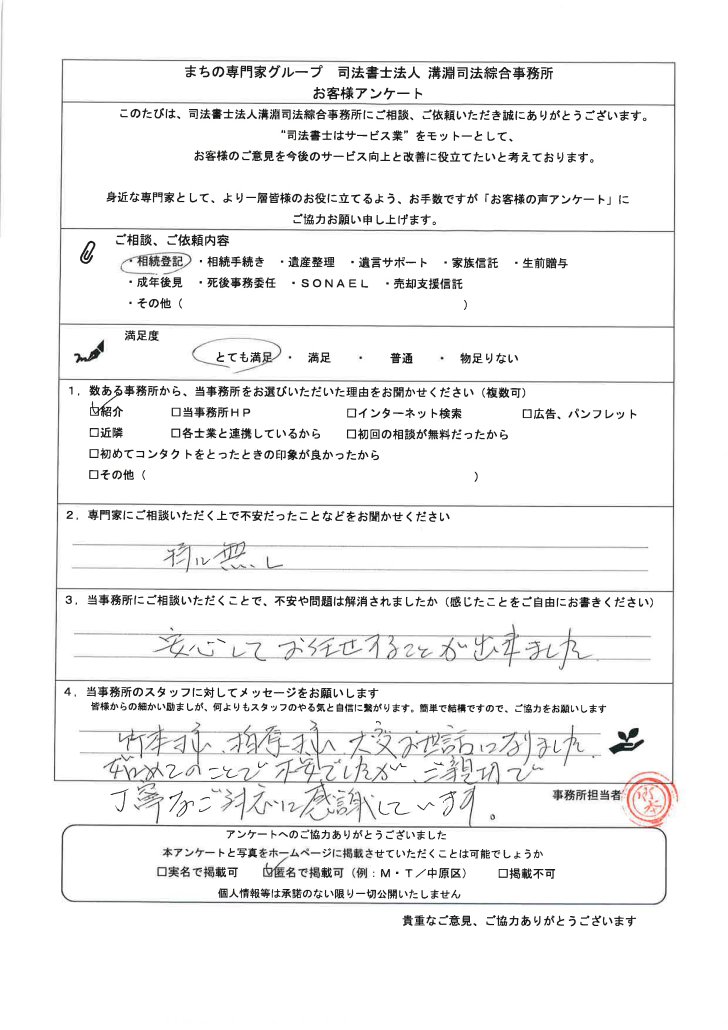 まちの専門家グループ　司法書士法人 溝淵司法綜合事務所
お客様アンケート
このたびは、司法書士法人溝淵司法綜合事務所にご相談、ご依頼いただき誠にありがとうございます。
“司法書士はサービス業”をモットーとして、
お客様のご意見を今後のサービス向上と改善に役立てたいと考えております。
身近な専門家として、より一層皆様のお役に立てるよう、お手数ですが「お客様の声アンケート」に
ご協力お願い申し上げます。
ご相談、ご依頼内容
・相続登記　・相続手続き　・遺産整理　・遺言サポート　・家族信託　・生前贈与
・成年後見　・死後事務委任　・ＳＯＮＡＥＬ　・売却支援信託
・その他（　　　　　　　　　　　　　　　　　　　　）
満足度
とても満足　・　満足　　・　　普通　　・　物足りない
１．数ある事務所から、当事務所をお選びいただいた理由をお聞かせください（複数可）
☑紹介　□当事務所ＨＰ　□インターネット検索　□広告、パンフレット
□近隣　□各士業と連携しているから　□初回の相談が無料だったから
□初めてコンタクトをとったときの印象が良かったから
□その他（　　　　　　　　　　　　　　　　　　　　）
２．専門家にご相談いただく上で不安だったことなどをお聞かせください
特に無し
３．当事務所にご相談いただくことで、不安や問題は解消されましたか（感じたことをご自由にお書きください）
安心してお任せすることが出来ました
４．当事務所のスタッフに対してメッセージをお願いします
皆様からの細かい励ましが、何よりもスタッフのやる気と自信に繋がります。簡単で結構ですので、ご協力をお願いします
竹本様、柏原様、大変お世話になりました
始めてのことで不安でしたが、ご親切で
丁寧なご対応に感謝しています。
事務所担当者
アンケートへのご協力ありがとうございました
本アンケートと写真をホームページに掲載させていただくことは可能でしょうか
□実名で掲載可　☑匿名で掲載可（例：Ｍ・Ｔ／中原区）　□掲載不可
個人情報等は承諾のない限り一切公開いたしません
貴重なご意見、ご協力ありがとうございます